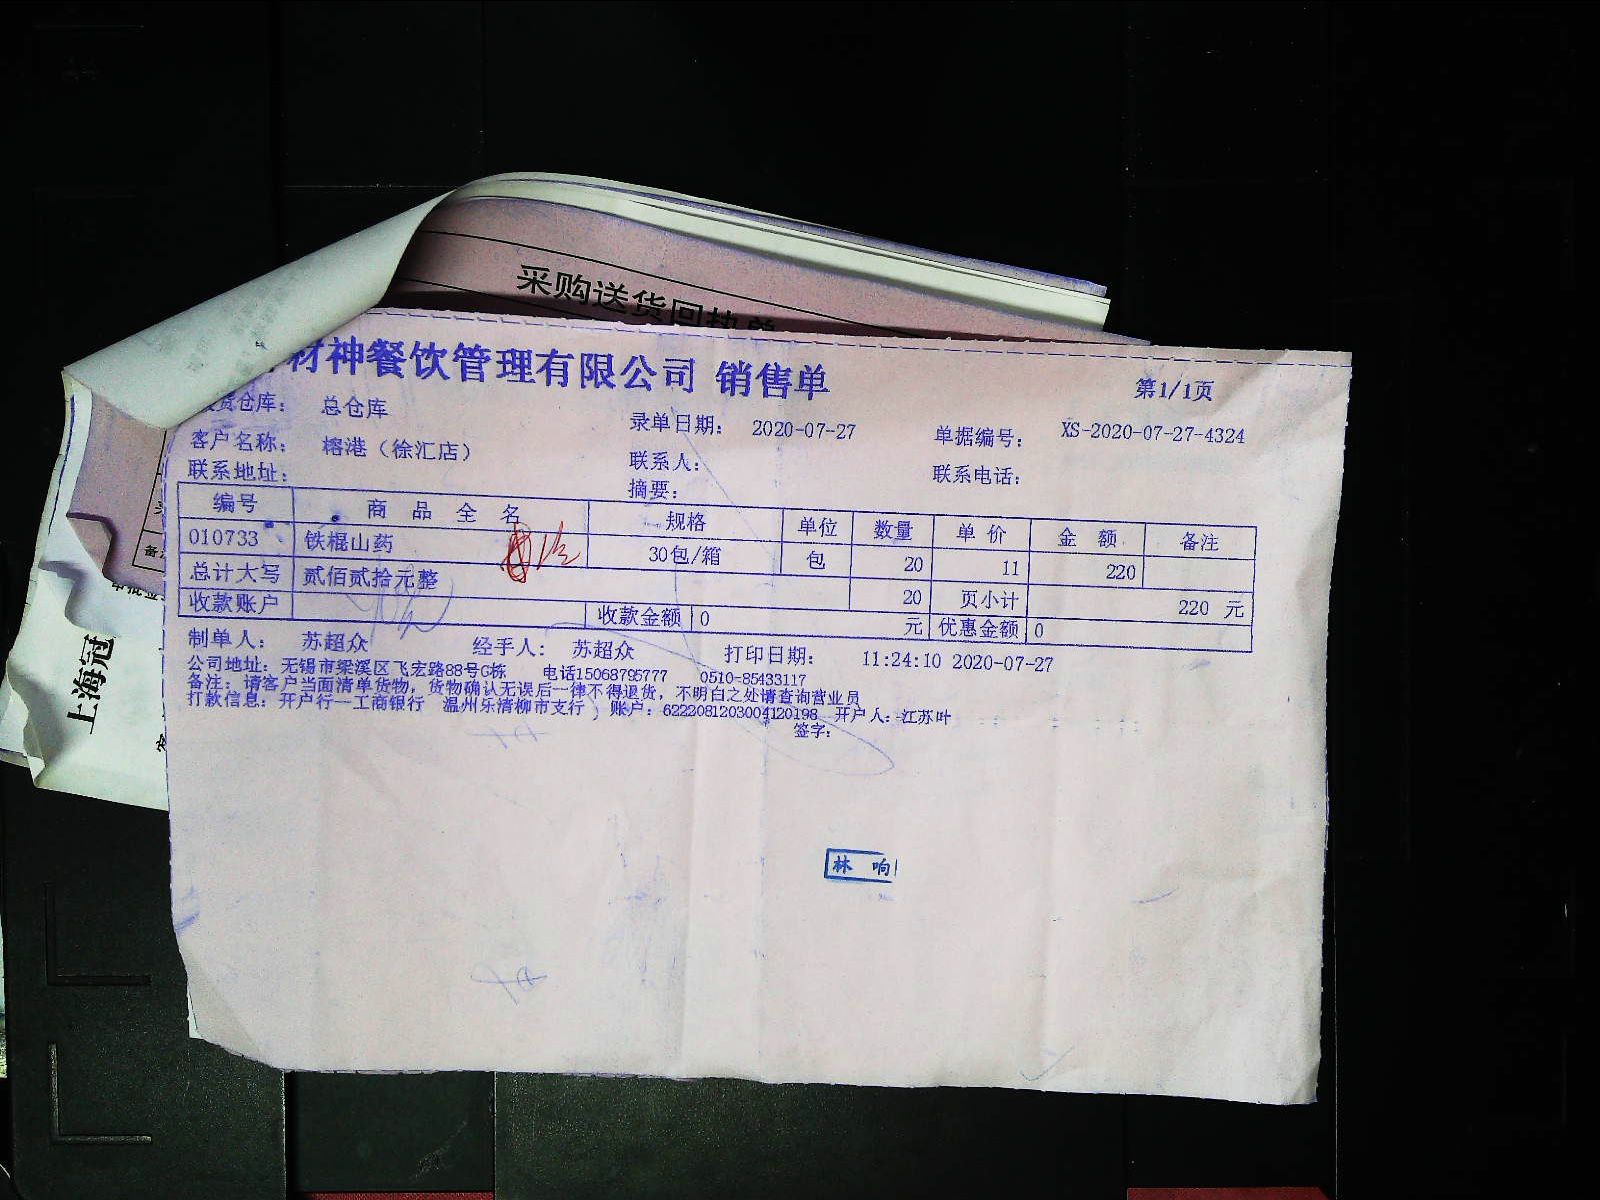 采购送货回执单
材神餐饮管理有限公司 销售单
第1/1页
发货仓库： 总仓库
录单日期： 2020-07-27
单据编号： XS-2020-07-27-4324
客户名称： 榕港（徐汇店）
联系人：
联系电话：
联系地址：
摘要：
编号 商品全名 规格 单位 数量 单价 金额 备注
010733 铁棍山药 30包/箱 包 20 11 220
总计大写 贰佰贰拾元整 20 页小计 220 元
收款账户 收款金额 0 元 优惠金额 0
制单人： 苏超众 经手人： 苏超众 打印日期： 11:24:10 2020-07-27
公司地址：无锡市梁溪区飞宏路88号G栋 电话15068795777 0510-85433117
备注：请客户当面清单货物，货物确认无误后一律不得退货，不明白之处请查询营业员
打款信息：开户行一工商银行 温州乐清柳市支行 ，账户：6222081203004120198 开户人：江苏叶
签字：
林响
上海冠